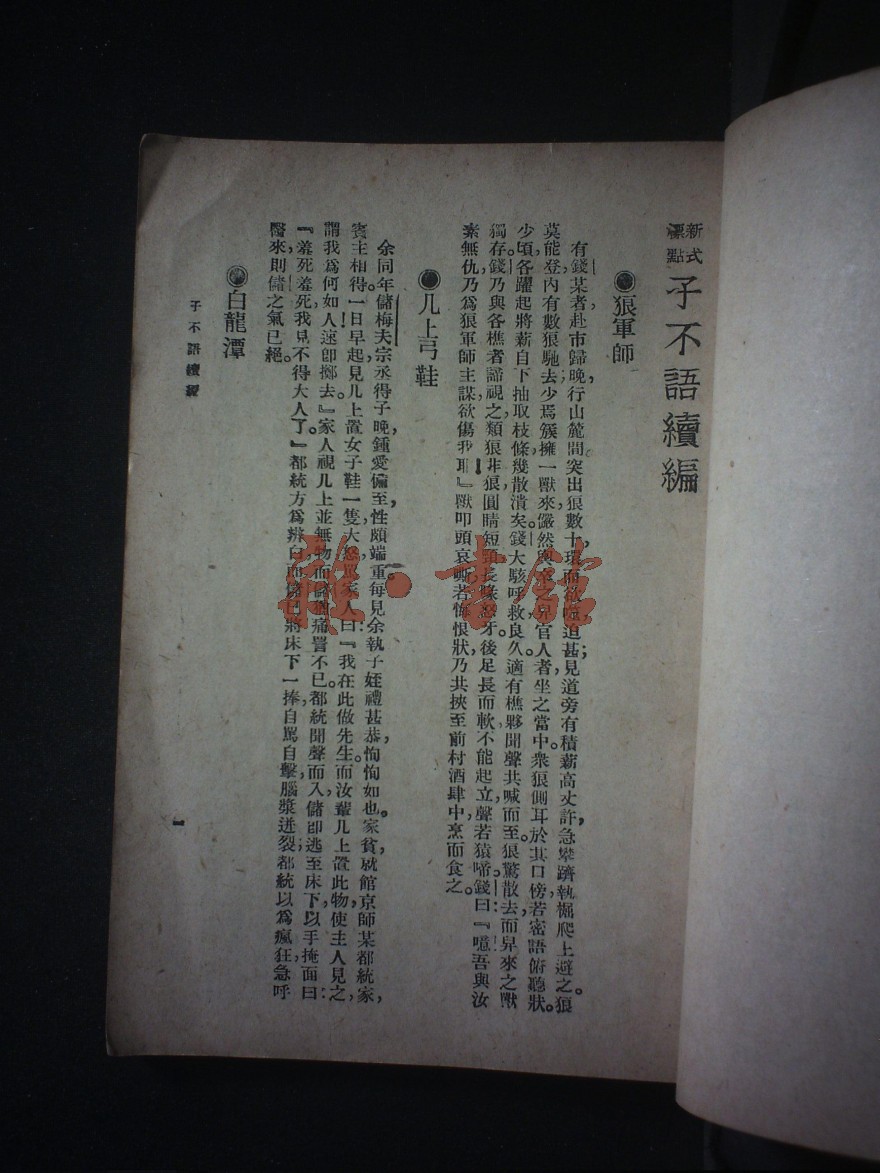 新式標點 子不語續編
●狼軍師
有錢某者,赴市歸晚,行山麓間,突出狼數十,環而欲噬。迫甚;見道旁有積薪高丈許,急攀躋執掘,爬上避之。狼
莫能登,內有數狼馳去,少焉,簇擁一獸來,儼然輿卒之舁官人者,坐之當中。衆狼側耳於其口傍,若密語俯聽狀。
少頃,各躍起,將薪自下抽取,枝條幾散潰矣。錢大駭呼救。良久,適有樵夥聞聲共喊而至。狼驚散去,而舁來之獸
獨存。錢乃與各樵者諦視之,類狼非狼,圓睛短頸,長喙怒牙。後足長而軟,不能起立,聲若猿啼。錢曰:『噫!吾與汝
素無仇,乃爲狼軍師主謀,欲傷我耶!』獸叩頭哀嘶,若悔恨狀。乃共挾至前村酒肆中,烹而食之。
●几上弓鞋
余同年儲梅夫宗丞,得子晚,鍾愛備至,性頗端重,每見余執子姪禮甚恭,恂恂如也。家貧,就館京師某都統家,
賓主相得。一日早起,見几上置女子鞋一隻,大怒罵家人曰:『我在此做先生。而汝輩几上置此物,使主人見之,
謂我爲何如人!速卽擲去。』家人視几上並無物,而儲猶痛詈不已。都統聞聲而入,儲卽逃至床下,以手掩面曰:
『羞死羞死,我見不得大人了。』都統方爲辨白,而儲已將床下一捧自罵自擊,腦漿迸裂;都統以爲瘋狂,急呼
醫來,則儲之氣已絕。
●白龍潭
子不語續編
一
雜·書館